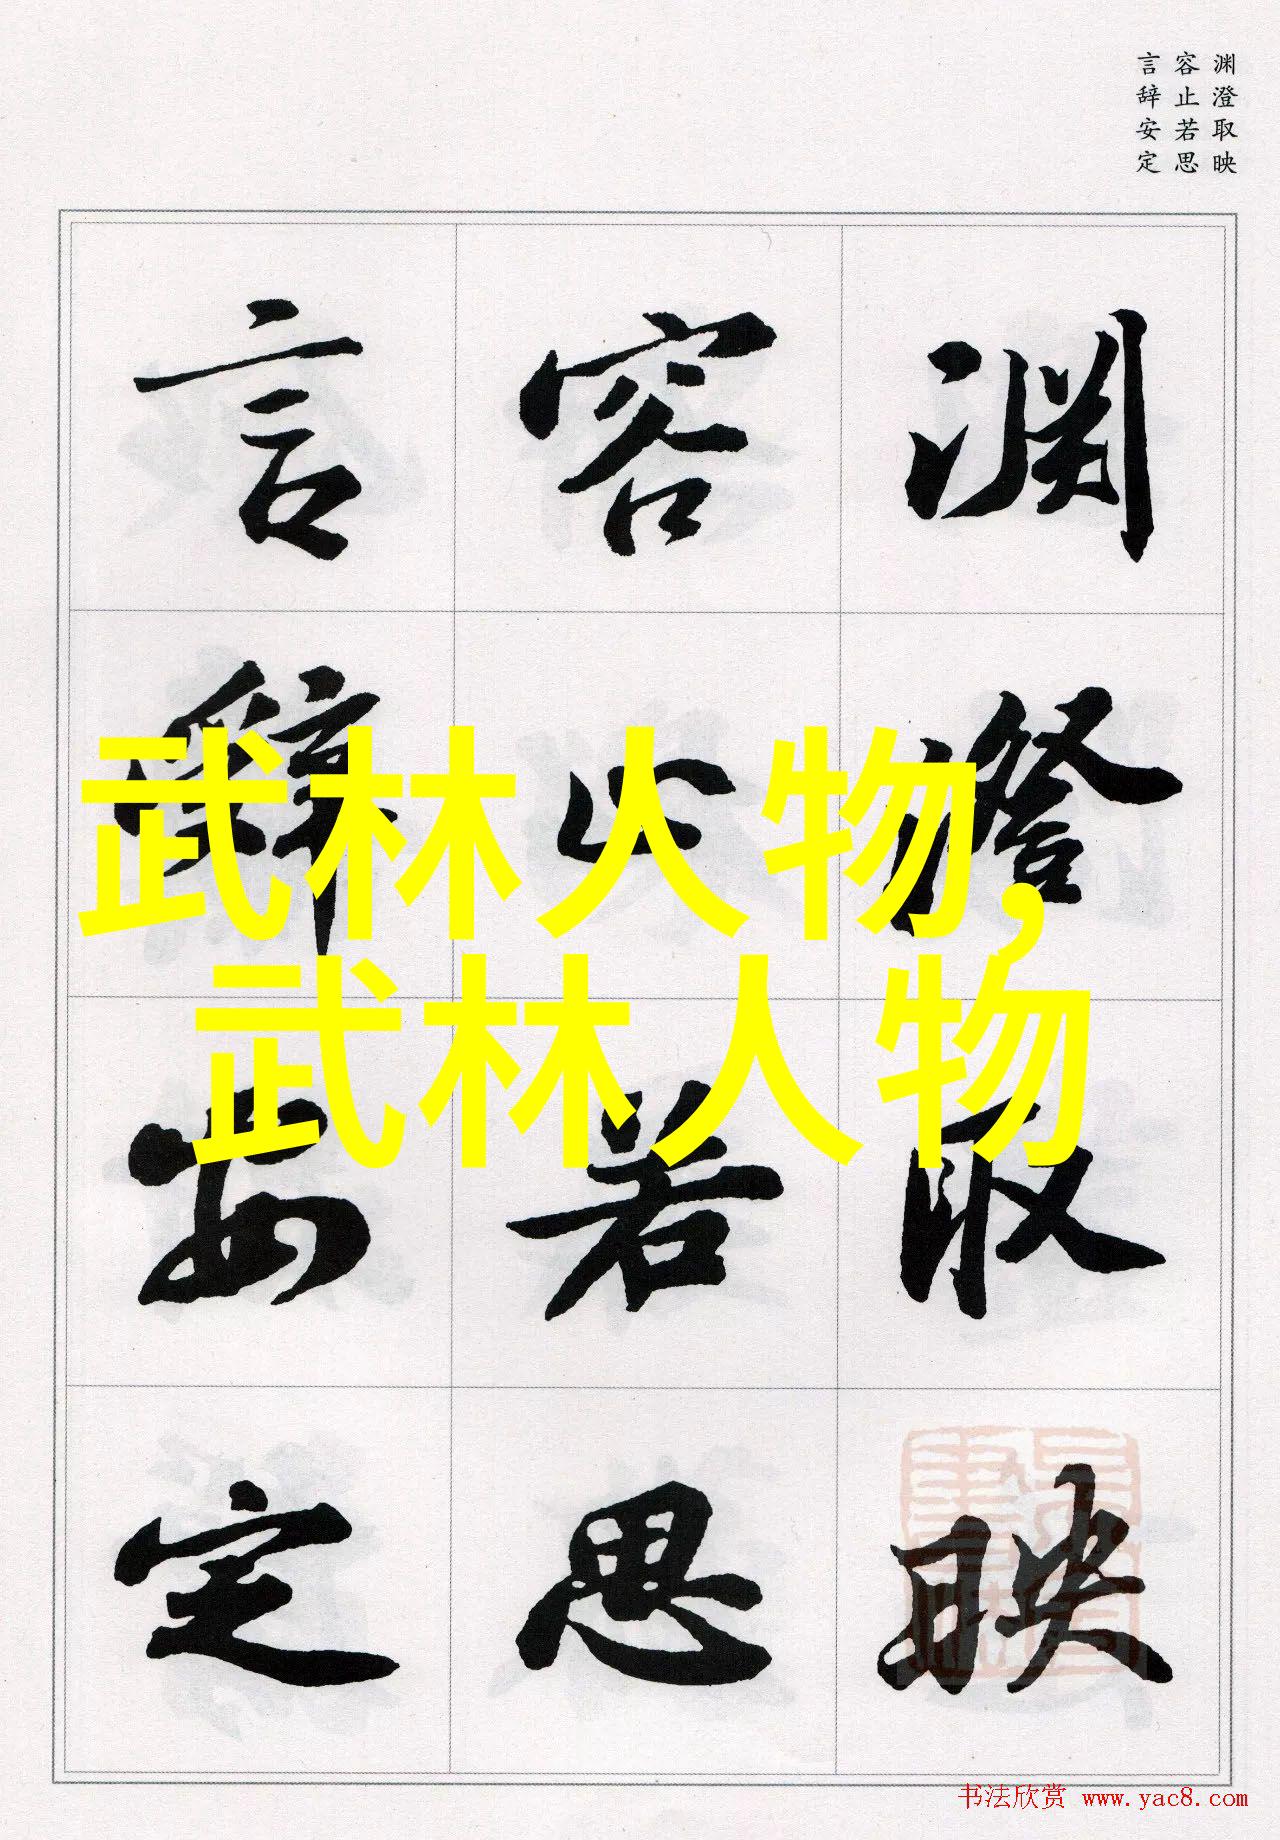 渊澄取映
容止若思
言辞安定
渊澄取映
容止若思
言辞安定
武林人物,
武林人物
书法欣赏 www.yac8.com